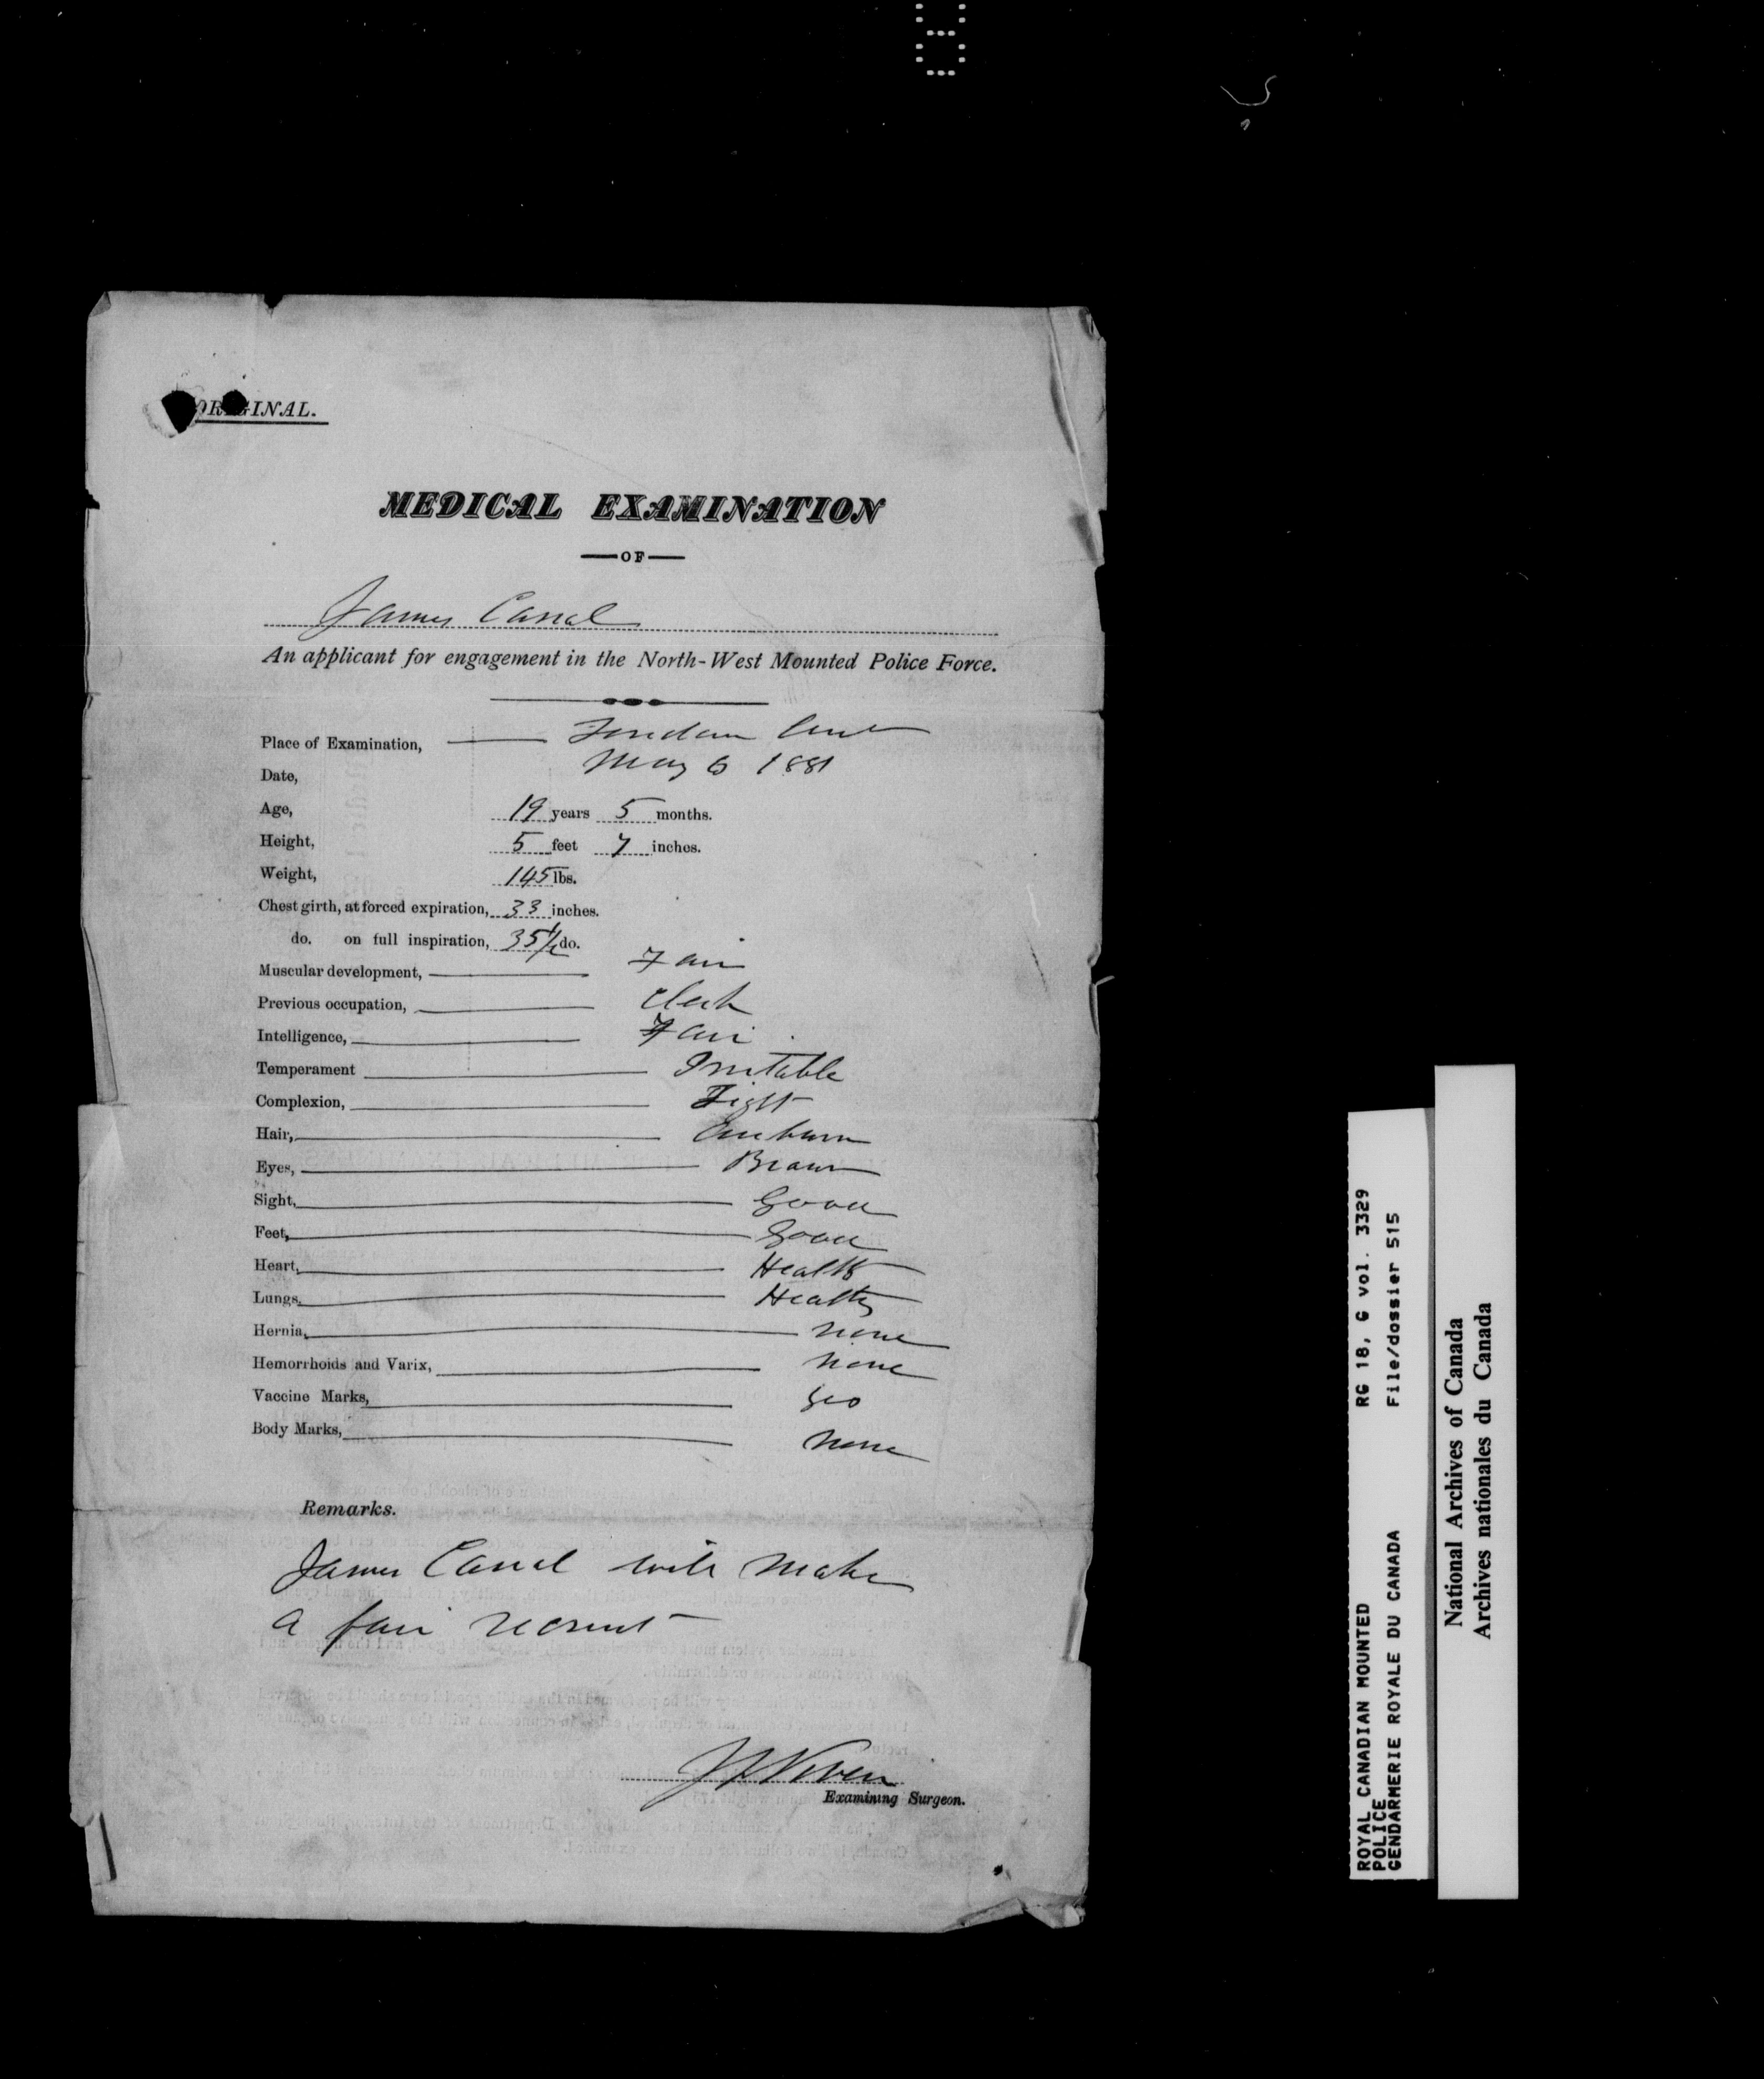 ORIGINAL.
MEDICAL EXAMINATION
OF
James
An applicant for engagement in the North-West Mounted Police Force.
Place of Examination, London Ont
Date, May 6 1881
Age, 19 years 5 months.
Height, 5 feet 7 inches.
Weight, 145 lbs.
Chest girth, at forced expiration, 33 inches.
do. on full inspiration, 35 1/2 do.
Muscular development, Fair
Previous occupation, Clerk
Intelligence, Fair
Temperament Irritable
Complexion, Light
Hair, Auburn
Eyes, Brown
Sight, Good
Feet, Good
Heart, Healthy
Lungs, Healthy
Hernia, None
Hemorrhoids and Varix, None
Vaccine Marks,
Body Marks, None
Remarks.
James will make
a fair recruit
Examining Surgeon.
ROYAL CANADIAN MOUNTED RG 18, G vol. 3329
POLICE
GENDARMERIE ROYALE DU CANADA File/dossier 515
National Archives of Canada
Archives nationales du Canada